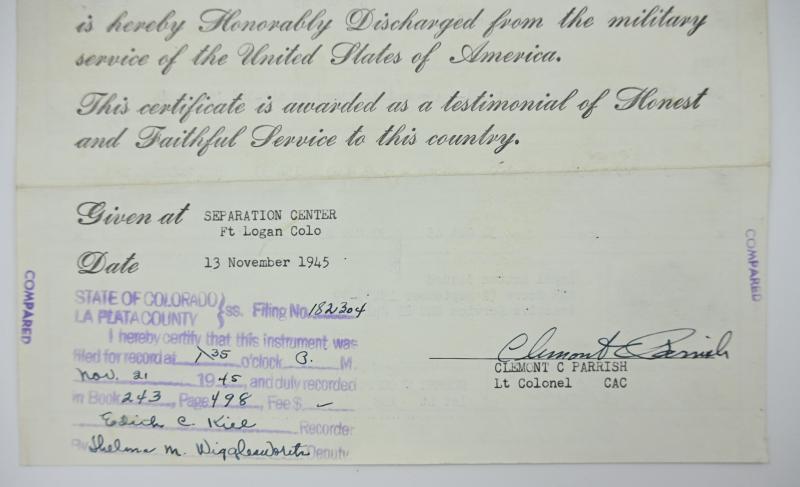 is hereby Honorably Discharged from the military
service of the United States of America.
This certificate is awarded as a testimonial of Honest
and Faithful Service to this country.
Given at SEPARATION CENTER
Ft Logan Colo
Date 13 November 1945
STATE OF COLORADO
LA PLATA COUNTY } ss. Filing No. 182304
I hereby certify that this instrument was
filed for record at 1 35 o'clock P. M.
Nov. 21 1945, and duly recorded
in Book 243, Page 498, Fee $ -
Edith C. Kiel Recorder
By Thelma M. Wigglesworth Deputy
COMPARED
COMPARED
Clemont C Parrish
CLEMONT C PARRISH
Lt Colonel CAC